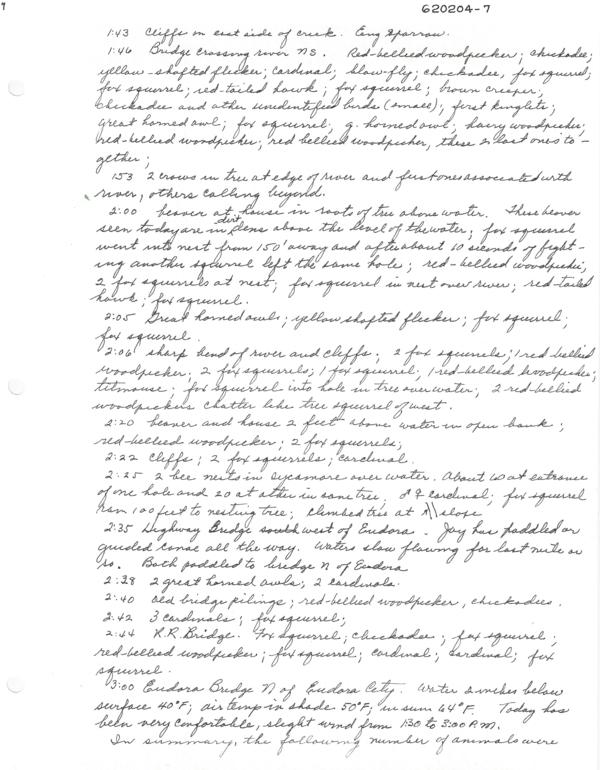 620204-7
1:43 Cliffs on east side of creek. Eng Sparrow.
1:46 Bridge crossing river NS. Red-bellied woodpecker; chickadee;
yellow-shafted flicker; cardinal; blow fly; chickadee, fox squirrel;
fox squirrel; red-tailed hawk; fox squirrel; brown creeper;
chickadee and other unidentified birds (small); first kinglets;
great horned owl; fox squirrel; g. horned owl; hairy woodpecker;
red-bellied woodpecker; red bellied woodpecker, these 2 last ones to-
gether;
153 2 crows in tree at edge of river and first ones associated with
river, others calling beyond.
2:00 beaver at house in roots of tree above water. These beaver
seen today are in dirt dens above the level of the water; fox squirrel
went into nest from 150' away and after about 10 seconds of fight-
ing another squirrel left the same hole; red-bellied woodpecker,
2 fox squirrels at nest; fox squirrel in nest over river; red-tailed
hawk; fox squirrel.
2:05 Great horned owls; yellow shafted flicker; fox squirrel;
fox squirrel.
2:06 sharp bend of river and cliffs; 2 fox squirrels; 1 red-bellied
woodpecker; 2 fox squirrels; 1 fox squirrel; 1 red-bellied woodpecker;
titmouse; fox squirrel into hole in tree over water; 2 red-bellied
woodpeckers chatter like tree squirrel of west.
2:20 beaver and house 2 feet above water in open bank;
red-bellied woodpecker; 2 fox squirrels;
2:22 cliffs; 2 fox squirrels; cardinal.
2:25 2 bee nests in sycamore over water. About 60 at entrance
of one hole and 20 at other in same tree. ♂♀ cardinal; fox squirrel
ran 100 feet to nesting tree; climbed tree at slope
2:35 Highway Bridge southwest of Eudora. Jay has paddled or
guided canoe all the way. Waters slow flowing for last mile or
so. Both paddled to bridge N of Eudora
2:38 2 great horned owls; 2 cardinals.
2:40 old bridge pilings; red-bellied woodpecker, chickadees.
2:42 3 cardinals; fox squirrel;
2:44 R.R. Bridge. Fox squirrel; chickadee; fox squirrel;
red-bellied woodpecker; fox squirrel; cardinal; cardinal; fox
squirrel.
3:00 Eudora Bridge N of Eudora City. Water 2 inches below
surface 40°F; air temp in shade 50°F; in sun 64°F. Today has
been very comfortable, slight wind from 130 to 3:00 P.M.
In summary, the following number of animals were